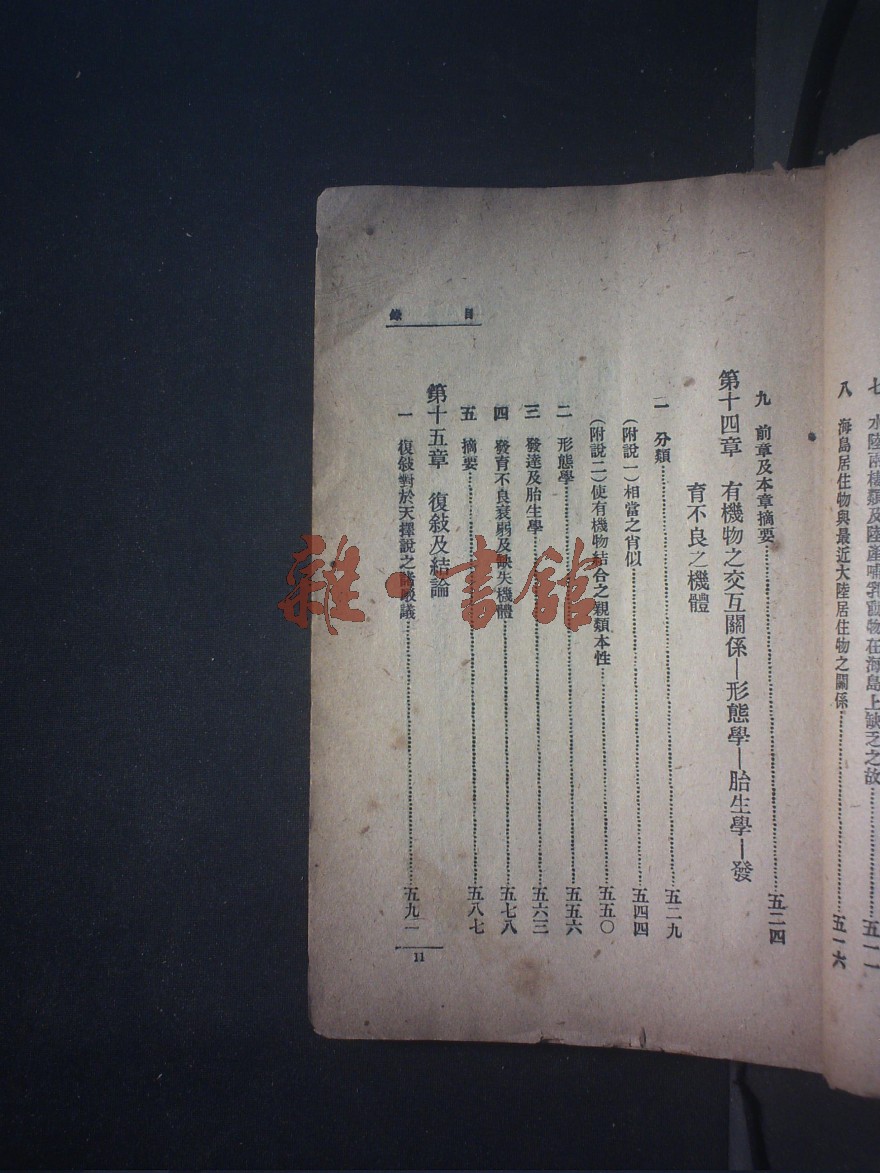 七　水陸兩棲類及陸產哺乳動物在海島上缺乏之故……五一一
八　海島居住物與最近大陸居住物之關係……五一六
九　前章及本章摘要……五二四
第十四章　有機物之交互關係—形態學—胎生學—發
育不良之機體
一　分類……五二九
（附說一）相當之肖似……五四四
（附說二）使有機物結合之親類本性……五五〇
二　形態學……五五六
三　發達及胎生學……五六三
四　發育不良衰弱及缺失機體……五七八
五　摘要……五八七
第十五章　復敍及結論
一　復敍對於天擇說之諸駁議……五九一
目錄
11
雜·書館